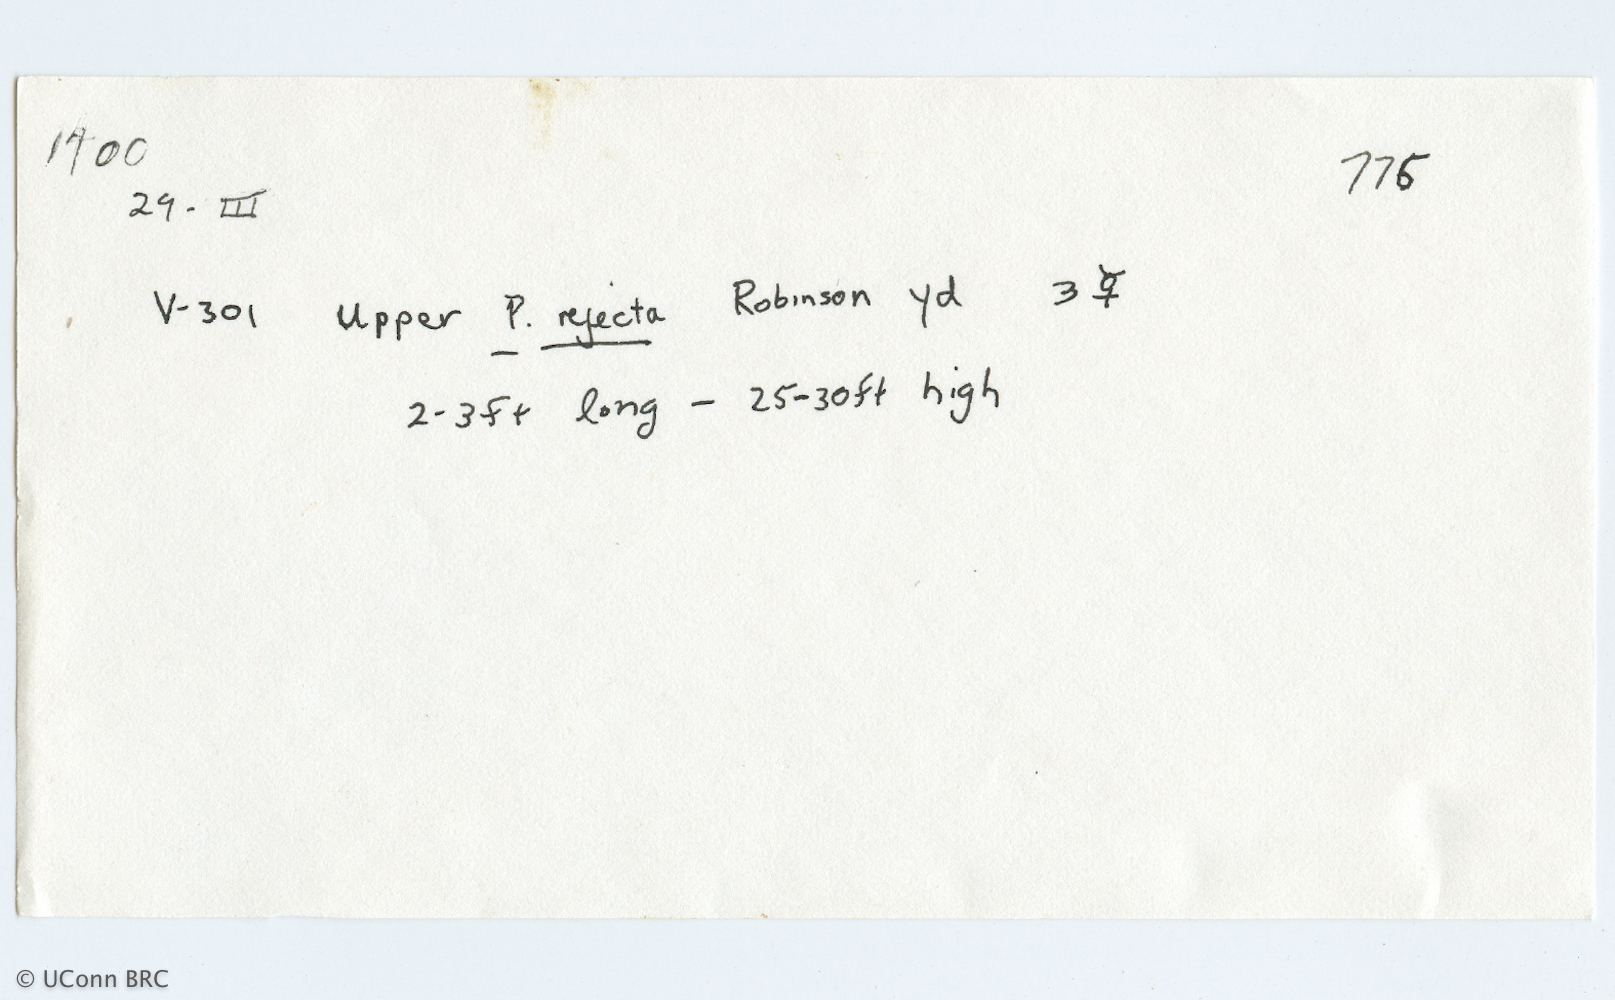 1400
775
29. III
V-301 Upper P. rejecta Robinson yd 3 ☿
2-3ft long - 25-30ft high
© UConn BRC